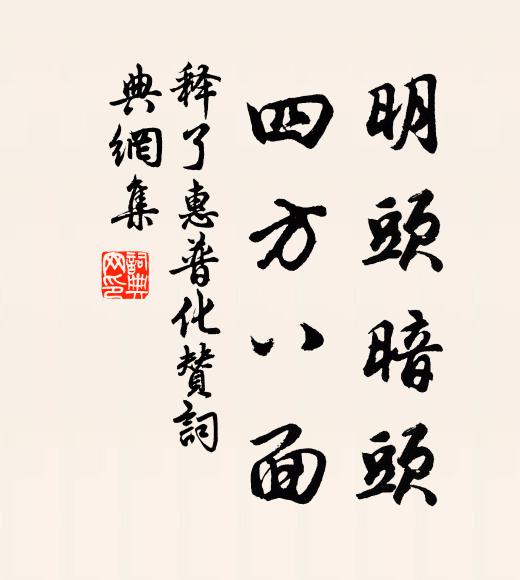 明頭暗頭
四方八面
释了惠普化赞詞
典網集
詞典网印